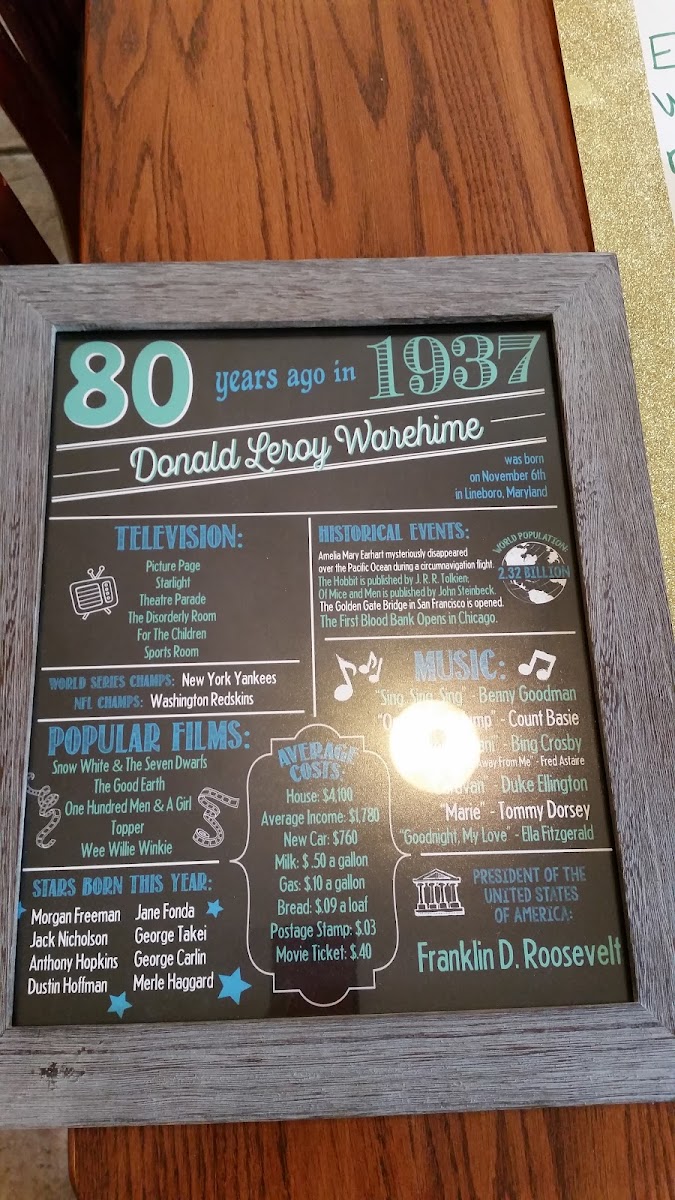 80 years ago in 1937
Donald Leroy Warehime
was born
on November 6th
in Lineboro, Maryland
TELEVISION:
Picture Page
Starlight
Theatre Parade
The Disorderly Room
For The Children
Sports Room
WORLD SERIES CHAMPS: New York Yankees
NFL CHAMPS: Washington Redskins
HISTORICAL EVENTS:
Amelia Mary Earhart mysteriously disappeared
over the Pacific Ocean during a circumnavigation flight.
The Hobbit is published by J. R. R. Tolkien;
Of Mice and Men is published by John Steinbeck.
The Golden Gate Bridge in San Francisco is opened.
The First Blood Bank Opens in Chicago.
WORLD POPULATION:
2.32 BILLION
MUSIC:
"Sing, Sing, Sing" - Benny Goodman
- Count Basie
- Bing Crosby
Away From Me" - Fred Astaire
- Duke Ellington
"Marie" - Tommy Dorsey
"Goodnight, My Love" - Ella Fitzgerald
POPULAR FILMS:
Snow White & The Seven Dwarfs
The Good Earth
One Hundred Men & A Girl
Topper
Wee Willie Winkie
AVERAGE
COSTS:
House: $4,100
Average Income: $1,780
New Car: $760
Milk: $ .50 a gallon
Gas: $.10 a gallon
Bread: $.09 a loaf
Postage Stamp: $.03
Movie Ticket: $.40
STARS BORN THIS YEAR:
Morgan Freeman
Jack Nicholson
Anthony Hopkins
Dustin Hoffman
Jane Fonda
George Takei
George Carlin
Merle Haggard
PRESIDENT OF THE
UNITED STATES
OF AMERICA:
Franklin D. Roosevelt